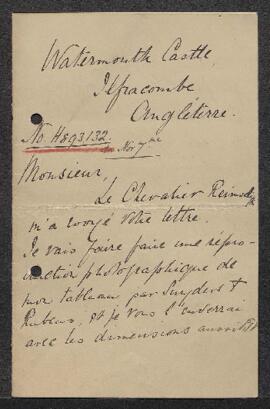 Watermouth Castle,
Ilfracombe
Angleterre.
No. H893132.
Nov 7me
Monsieur,
Le Chevalier
m'a envoyé votre lettre.
Je vais faire faire une répro-
duction photographique de
mon tableau par Snyders &
Rubens, et je vous l'enverrai
avec les dimensions aussitôt